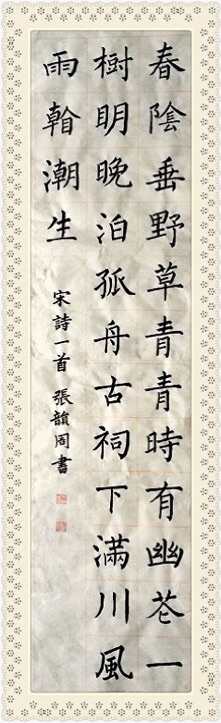 春陰垂野草青青時有幽花一
樹明晚泊孤舟古祠下滿川風
雨看潮生
宋詩一首 張韻同書